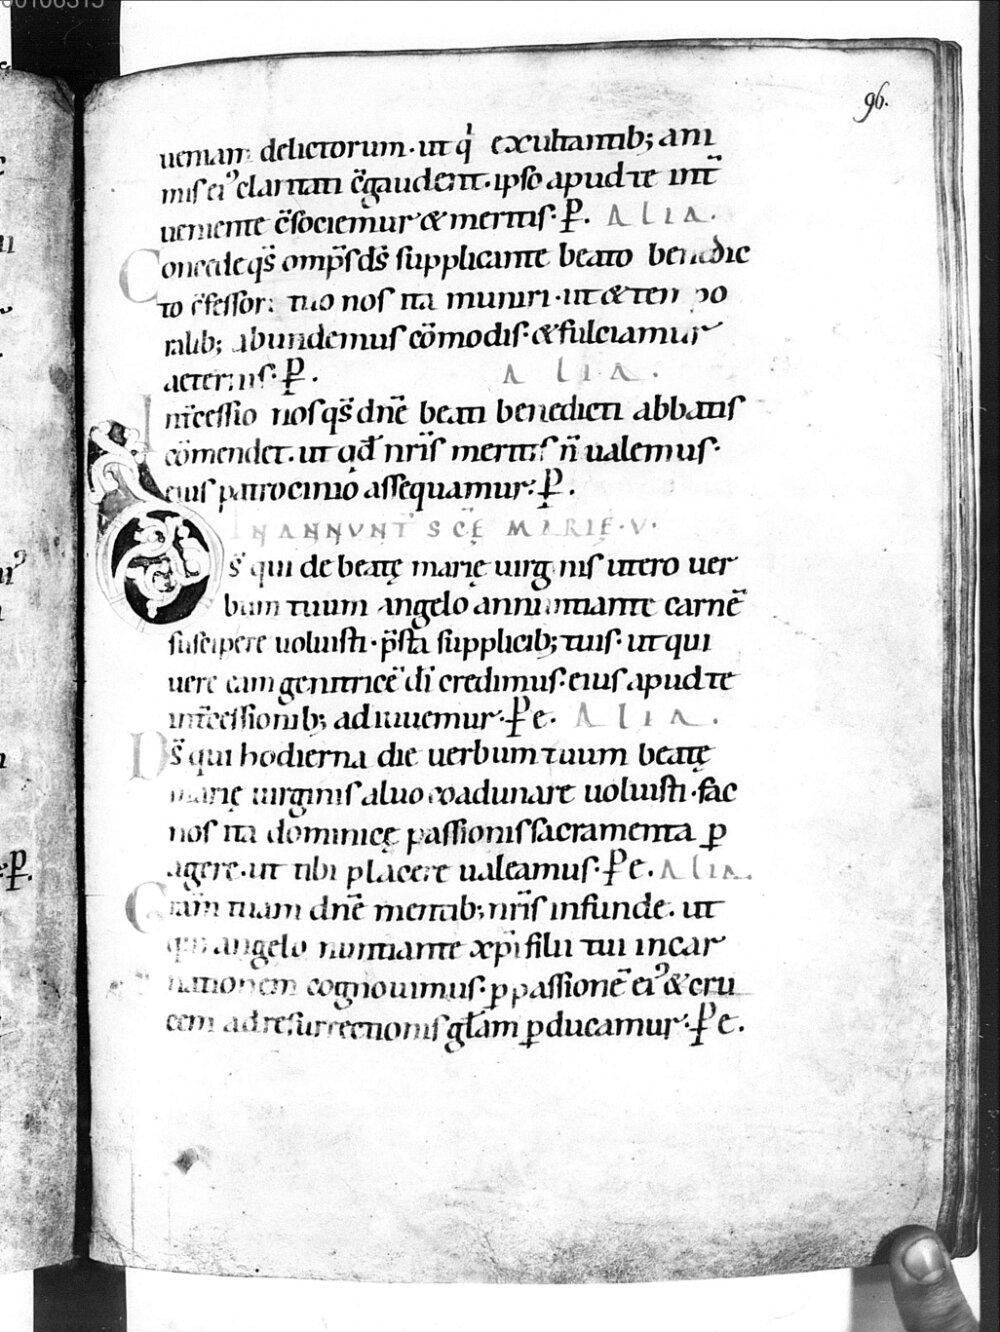 96.
ueniam delictorum. ut q͛ exultantib; ani
mis ei᾽ claritati c̄gaudent. ipso apud te int̄
ueniente c̄sociemur & meritis. P̱. ALIA.
Concede q̄s omp̄s d̄s supplicante beato benedic
to c̄fessori tuo nos ita muniri. ut & tempo
ralib; abundemus cōmodis. & fulciamur
aeternis. P̱. ALIA.
Int̄cessio nos q̄s dn̄e beati benedicti abbatis
cōmendet. ut qđ nr̄is meritis n̄ ualemus.
eius patrocinio assequamur. P̱.
IN ANNVNT̄ SC̄Ę MARIĘ. V.
Ds̄ qui de beatę marię uirginis utero uer
bum tuum angelo annuntiante carnē
suscipere uoluisti. p̄sta supplicib; tuis. ut qui
uere eam genitricē dī credimus. eius apud te
int̄cessionib; adiuuemur. P̱ e. ALIA.
Ds̄ qui hodierna die uerbum tuum beatę
marię uirginis aluo coadunare uoluisti. fac
nos ita dominicę passionis sacramenta ꝑ
agere. ut tibi placere ualeamus. P̱ e. ALIA.
Gr̄am tuam dn̄e mentib; nr̄is infunde. ut
qui angelo nuntiante xp̄i filii tui incar
nationem cognouimus. ꝑ passionē ei᾽ & cru
cem ad resurrectionis gl̄am ꝑducamur. P̱ e.